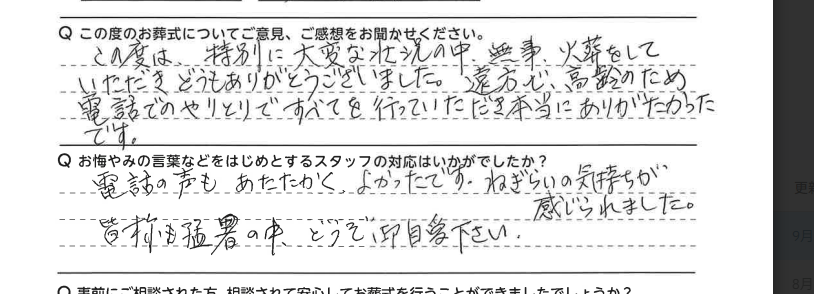 Q この度のお葬式についてご意見、ご感想をお聞かせください。
この度は、特別に大変な状況の中、無事、火葬をして
いただきどうもありがとうございました。遠方で、高齢のため
電話でのやりとりですべてを行っていただき本当にありがたかった
です。
Q お悔やみの言葉などをはじめとするスタッフの対応はいかがでしたか？
電話の声も あたたかく、よかったです。ねぎらいの気持ちが
感じられました。
皆様も猛暑の中、どうぞ御自愛下さい。
Q 事前にご相談された方、相談されて安心してお葬式を行うことができましたでしょうか？
更新
9月
8月